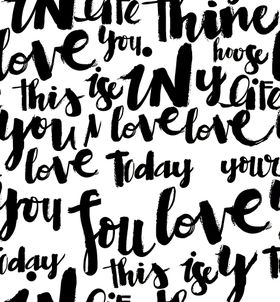 IN life Thine
love you. house
this ise IN y life
you N love love
love Today your
you fou love
Today IN this isey